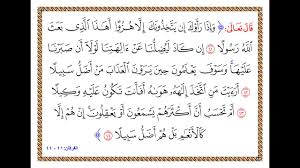 قَالَ تَعَالَى: ﴿ وَإِذَا رَأَوْكَ إِن يَتَّخِذُونَكَ إِلَّا هُزُوًا أَهَٰذَا ٱلَّذِي بَعَثَ
ٱللَّهُ رَسُولًا ۝ إِن كَادَ لَيُضِلُّنَا عَنْ ءَالِهَتِنَا لَوْلَآ أَن صَبَرْنَا
عَلَيْهَا ۚ وَسَوْفَ يَعْلَمُونَ حِينَ يَرَوْنَ ٱلْعَذَابَ مَنْ أَضَلُّ سَبِيلًا
۝ أَرَءَيْتَ مَنِ ٱتَّخَذَ إِلَٰهَهُۥ هَوَىٰهُ أَفَأَنتَ تَكُونُ عَلَيْهِ وَكِيلًا
۝ أَمْ تَحْسَبُ أَنَّ أَكْثَرَهُمْ يَسْمَعُونَ أَوْ يَعْقِلُونَ ۚ إِنْ هُمْ إِلَّا
كَٱلْأَنْعَٰمِ ۖ بَلْ هُمْ أَضَلُّ سَبِيلًا ۝ ﴾
الفرقان: ٤١ - ٤٤